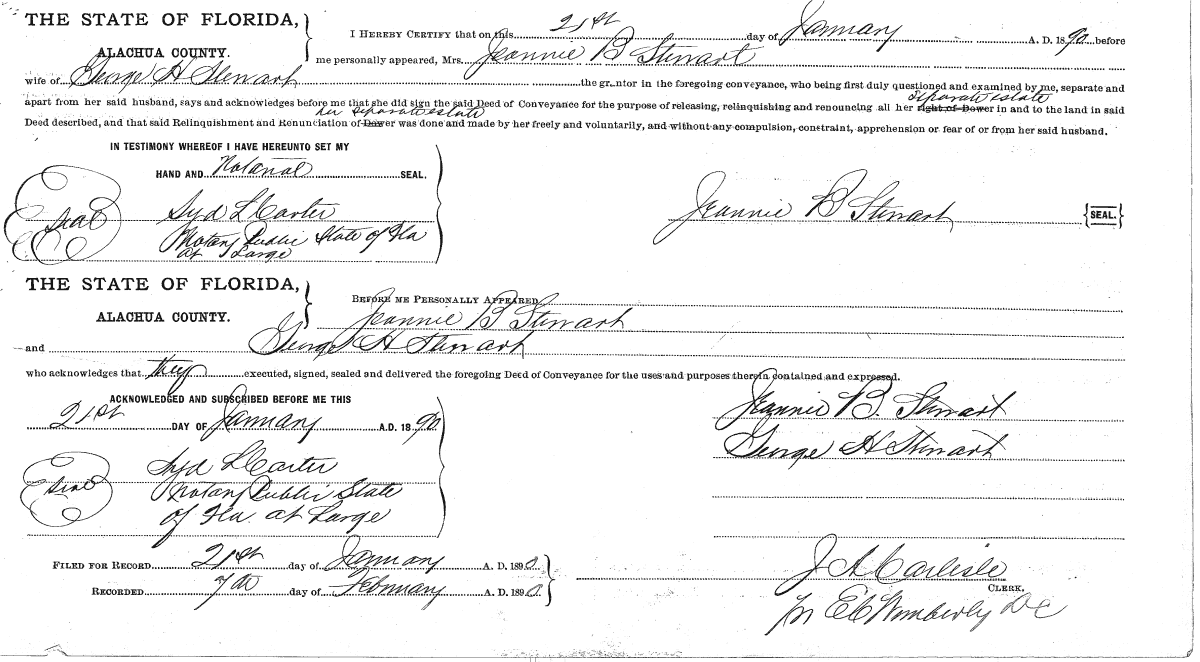 THE STATE OF FLORIDA,
ALACHUA COUNTY.
I HEREBY CERTIFY that on this 21st day of January A. D. 1890 before
me personally appeared, Mrs. Jeannie B Stewart
wife of George H Stewart the grantor in the foregoing conveyance, who being first duly questioned and examined by me, separate and
separate estate
apart from her said husband, says and acknowledges before me that she did sign the said Deed of Conveyance for the purpose of releasing, relinquishing and renouncing all her right of Dower in and to the land in said
her separate estate
Deed described, and that said Relinquishment and Renunciation of Dower was done and made by her freely and voluntarily, and without any compulsion, constraint, apprehension or fear of or from her said husband.
IN TESTIMONY WHEREOF I HAVE HEREUNTO SET MY
HAND AND Notarial SEAL.
Seal
Syd L Carter
Notary Public State of Fla
at Large
Jeannie B Stewart {SEAL.}
THE STATE OF FLORIDA,
ALACHUA COUNTY.
BEFORE ME PERSONALLY APPEARED
Jeannie B Stewart
and George H Stewart
who acknowledges that they executed, signed, sealed and delivered the foregoing Deed of Conveyance for the uses and purposes therein contained and expressed.
ACKNOWLEDGED AND SUBSCRIBED BEFORE ME THIS
21st DAY OF January A.D. 1890
Seal
Syd L Carter
Notary Public State
of Fla. at Large
Jeannie B. Stewart
George H Stewart
FILED FOR RECORD 21st day of January A. D. 1890.
RECORDED 7th day of February A. D. 1890.
J A Carlisle
CLERK.
Per E C Wimberly D C